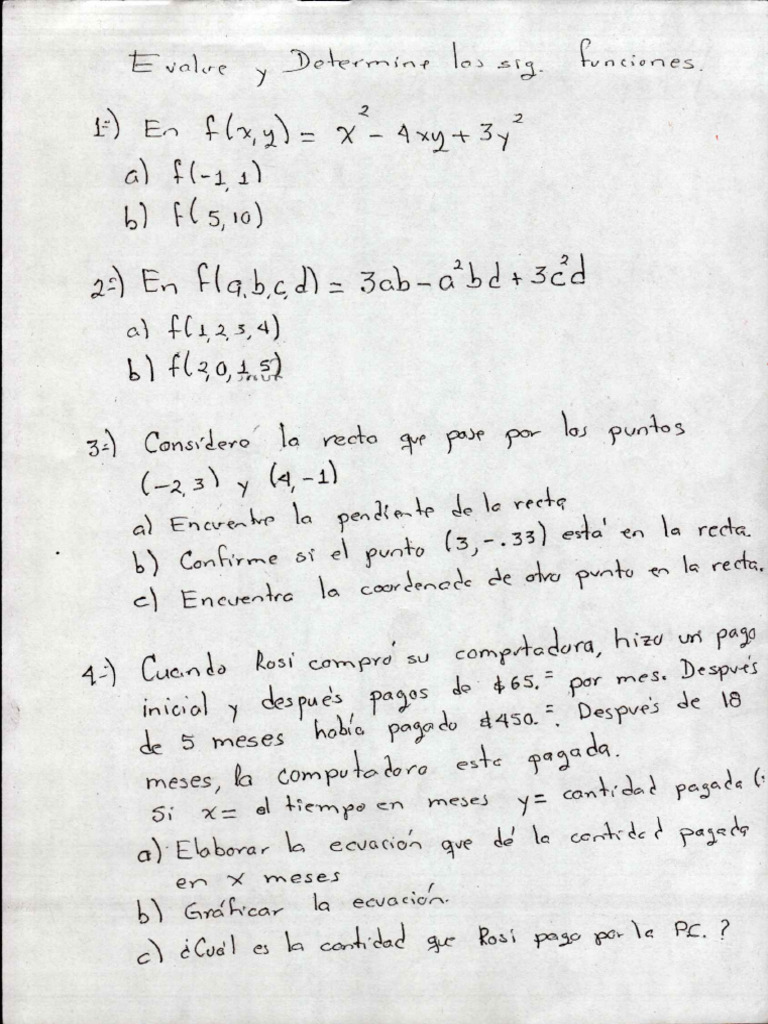 Evalue y Determine los sig. funciones.
1-) En f(x,y) = x² - 4xy + 3y²
a) f(-1, 1)
b) f(5, 10)
2-) En f(a,b,c,d) = 3ab - a²bd + 3c²d
a) f(1,2,3,4)
b) f(2,0,1,5)
3-) Consideró la recta que pase por los puntos
(-2,3) y (4,-1)
a) Encuentre la pendiente de la recta
b) Confirme si el punto (3,-.33) está en la recta.
c) Encuentra la coordenada de otro punto en la recta.
4-) Cuando Rosi compró su computadora, hizo un pago
inicial y después pagos de $65.= por mes. Después
de 5 meses había pagado $450.=. Después de 18
meses, la computadora esta pagada.
Si x= el tiempo en meses y= cantidad pagada (
a) Elaborar la ecuación que dé la cantidad pagada
en x meses
b) Gráficar la ecuación.
c) ¿Cuál es la cantidad que Rosi pago por la PC.?